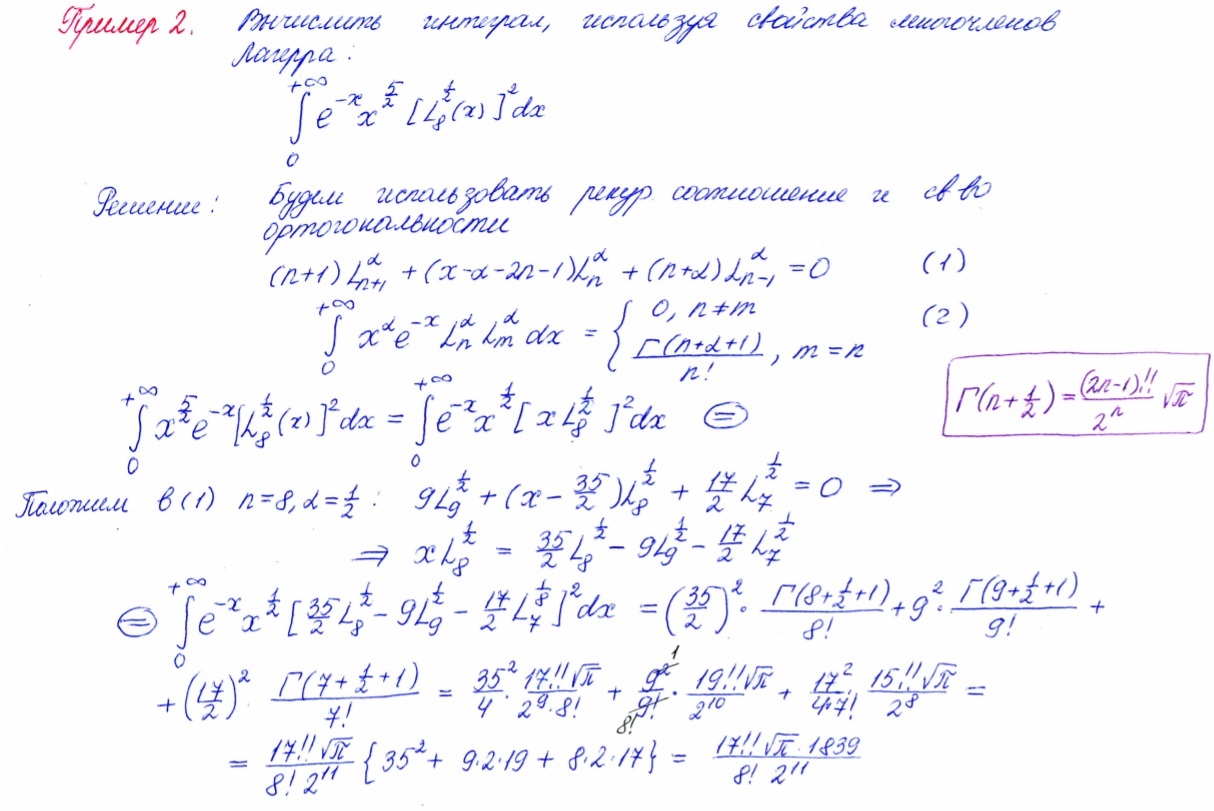 Пример 2. Вычислить интеграл, используя свойства многочленов
Лагерра:
∫₀^{+∞} e^{-x} x^{5/2} [L_8^{1/2}(x)]² dx
Решение: Будем использовать рекур. соотношение и св-во
ортогональности
(n+1) L_{n+1}^α + (x-α-2n-1) L_n^α + (n+α) L_{n-1}^α = 0 (1)
∫₀^{+∞} x^α e^{-x} L_n^α L_m^α dx = { 0, n≠m; Γ(n+α+1)/n!, m=n (2)
Γ(n+1/2) = (2n-1)!!/2^n √π
∫₀^{+∞} x^{5/2} e^{-x} [L_8^{1/2}(x)]² dx = ∫₀^{+∞} e^{-x} x^{1/2} [x L_8^{1/2}]² dx ⊜
Положим в (1) n=8, α=1/2 : 9L_9^{1/2} + (x - 35/2) L_8^{1/2} + 17/2 L_7^{1/2} = 0 ⇒
⇒ x L_8^{1/2} = 35/2 L_8^{1/2} - 9L_9^{1/2} - 17/2 L_7^{1/2}
⊜ ∫₀^{+∞} e^{-x} x^{1/2} [35/2 L_8^{1/2} - 9L_9^{1/2} - 17/2 L_7^{1/8}]² dx = (35/2)² · Γ(8+1/2+1)/8! + 9² · Γ(9+1/2+1)/9! +
+ (17/2)² Γ(7+1/2+1)/7! = 35²/4 · 17!!√π/(2^9·8!) + 9²/9! 1 8! · 19!!√π/2^{10} + 17²/(4·7!) · 15!!√π/2^8 =
= 17!!√π/(8! 2^{11}) {35² + 9·2·19 + 8·2·17} = 17!!√π·1839/(8! 2^{11})